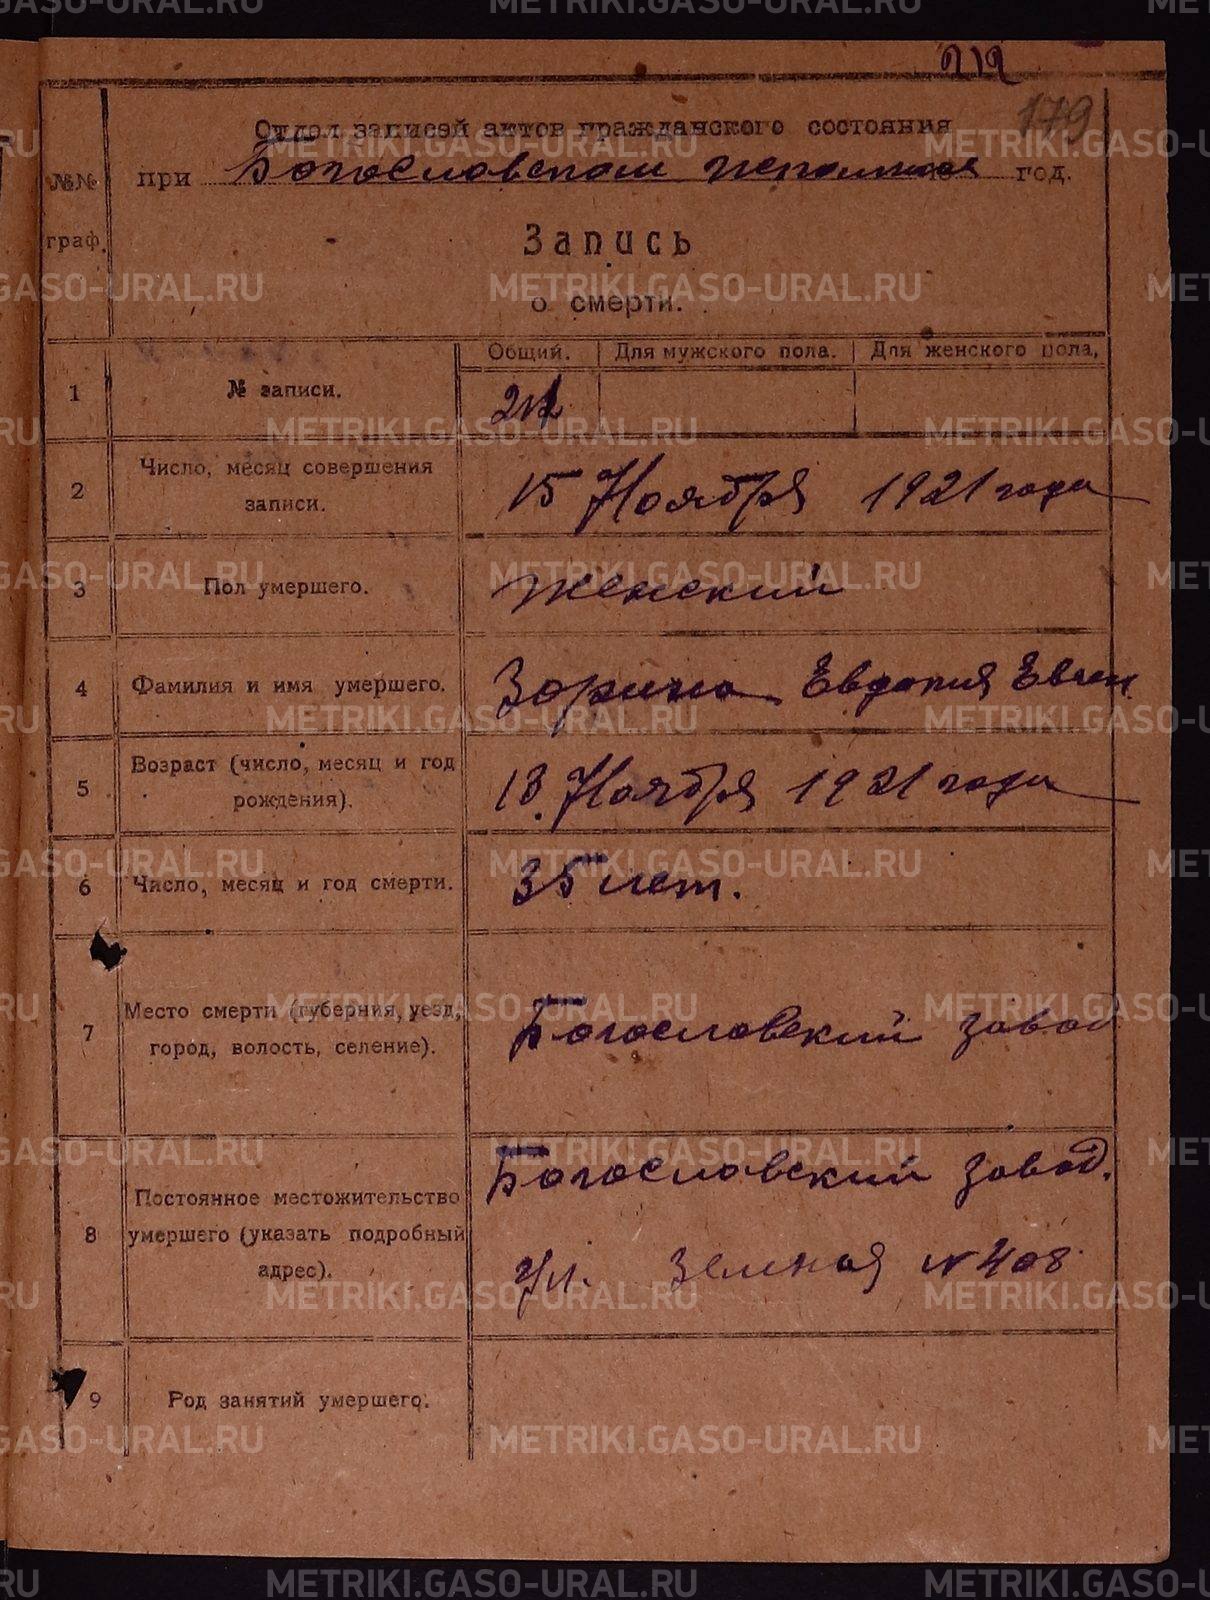 212
179
Отдел записей актов гражданского состояния
при Богословском исполкоме год.
№№ граф.
Запись
о смерти.
Общий. Для мужского пола. Для женского пола,
1 № записи. 212
2 Число, месяц совершения
записи.
15 Ноября 1921 года
3 Пол умершего. Женский
4 Фамилия и имя умершего. Зорина Евдокия Евген.
5 Возраст (число, месяц и год
рождения).
13 Ноября 1921 года
6 Число, месяц и год смерти. 35 лет.
7 Место смерти (губерния, уезд,
город, волость, селение).
Богословский завод
8 Постоянное местожительство
умершего (указать подробный
адрес).
Богословский завод.
Ул. №408
9 Род занятий умершего.
METRIKI.GASO-URAL.RU